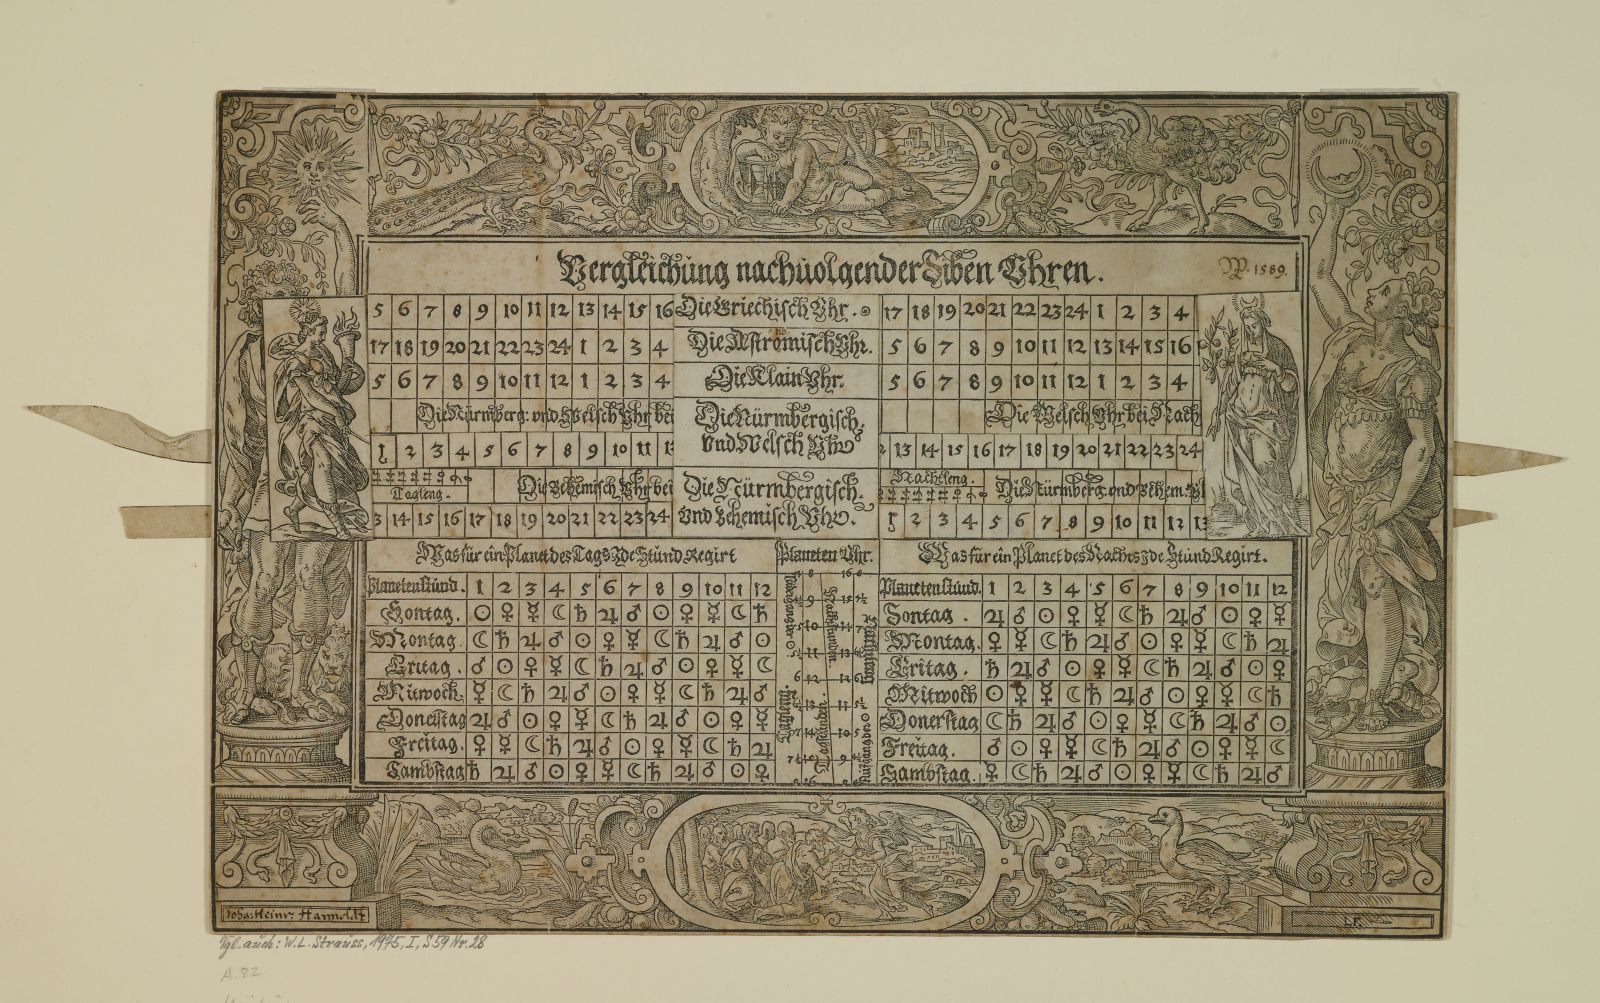 Vergleichüng nachuolgender Siben Uhren.
1589.
5 6 7 8 9 10 11 12 13 14 15 16 Die Griechisch Vhr. 17 18 19 20 21 22 23 24 1 2 3 4
17 18 19 20 21 22 23 24 1 2 3 4 Die Astronomisch Vhr. 5 6 7 8 9 10 11 12 13 14 15 16
5 6 7 8 9 10 11 12 1 2 3 4 Die Klain Vhr. 5 6 7 8 9 10 11 12 1 2 3 4
Die Nürmberg: vnd Welsch Vhr bei Die Nürmbergisch. Die Welsch Vhr bei Nach
Vnd Welsch Vhr
1 2 3 4 5 6 7 8 9 10 11 13 14 15 16 17 18 19 20 21 22 23 24
Tagleng. Die Behemisch Vhr bei Die Nürmbergisch. Nachtleng. Die Nürmberg: vnd Behem. V
3 14 15 16 17 18 19 20 21 22 23 24 Vnd Behemisch Vhr. 1 2 3 4 5 6 7 8 9 10 11 12 13
Was für ein Planet des Tags Jde Stünd Regirt Planeten Vhr. Was für ein Planet des Nachts Jde Stünd Regirt.
Planeten stünd. 1 2 3 4 5 6 7 8 9 10 11 12 Planeten stünd. 1 2 3 4 5 6 7 8 9 10 11 12
Sontag. ☉ ♀ ☿ ☾ ♄ ♃ ♂ ☉ ♀ ☿ ☾ ♄ Sontag. ♃ ♂ ☉ ♀ ☿ ☾ ♄ ♃ ♂ ☉ ♀ ☿
Montag. ☾ ♄ ♃ ♂ ☉ ♀ ☿ ☾ ♄ ♃ ♂ ☉ Montag. ♀ ☿ ☾ ♄ ♃ ♂ ☉ ♀ ☿ ☾ ♄ ♃
Eritag. ♂ ☉ ♀ ☿ ☾ ♄ ♃ ♂ ☉ ♀ ☿ ☾ Eritag. ♄ ♃ ♂ ☉ ♀ ☿ ☾ ♄ ♃ ♂ ☉ ♀
Mitwoch. ☿ ☾ ♄ ♃ ♂ ☉ ♀ ☿ ☾ ♄ ♃ ♂ Mitwoch ☉ ♀ ☿ ☾ ♄ ♃ ♂ ☉ ♀ ☿ ☾ ♄
Donerstag ♃ ♂ ☉ ♀ ☿ ☾ ♄ ♃ ♂ ☉ ♀ ☿ Donerstag ☾ ♄ ♃ ♂ ☉ ♀ ☿ ☾ ♄ ♃ ♂ ☉
Freitag. ♀ ☿ ☾ ♄ ♃ ♂ ☉ ♀ ☿ ☾ ♄ ♃ Freitag. ♂ ☉ ♀ ☿ ☾ ♄ ♃ ♂ ☉ ♀ ☿ ☾
Sambstag ♄ ♃ ♂ ☉ ♀ ☿ ☾ ♄ ♃ ♂ ☉ ♀ Sambstag. ☿ ☾ ♄ ♃ ♂ ☉ ♀ ☿ ☾ ♄ ♃ ♂
Joha: Heinr: Hamoldt
Vgl. auch: W. L. Strauss, 1975, I, S 59 Nr. 28
A. 82